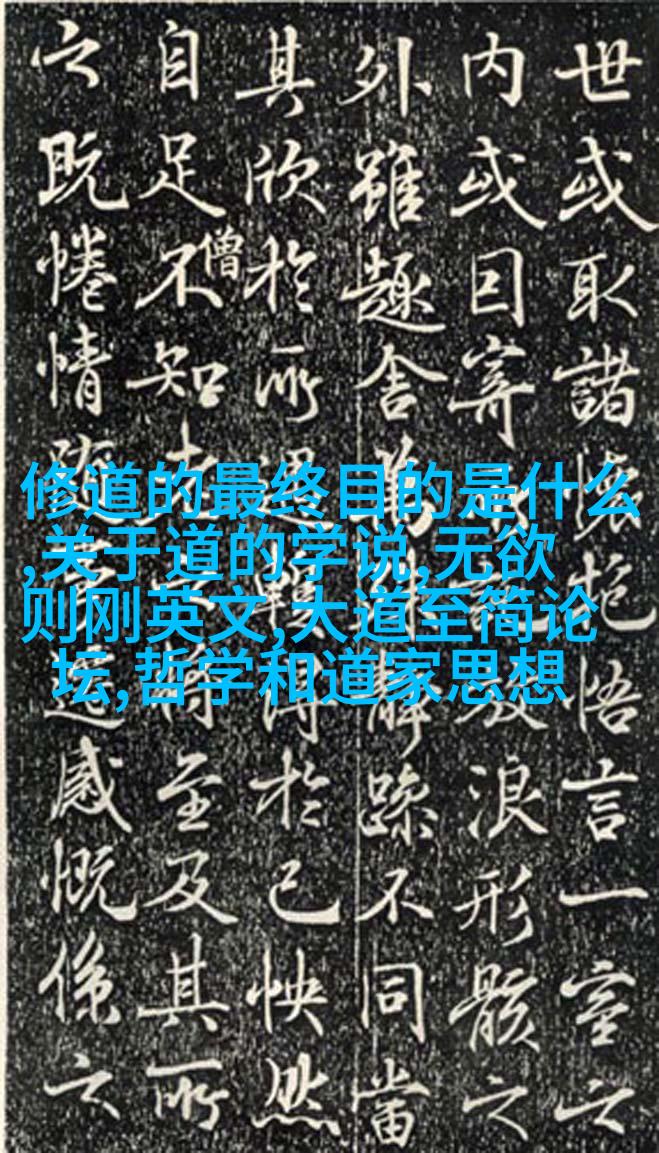 世或取諸懷抱悟言一室之
内或因寄放浪形骸之
外雖趣舍萬靜躁不同當
其欣於所遇暫得於己怏然
自足不知老將至及其所
僧
之既惓情隨遷感慨係之
修道的最终目的是什么
,关于道的学说,无欲
则刚英文,大道至简论
坛,哲学和道家思想